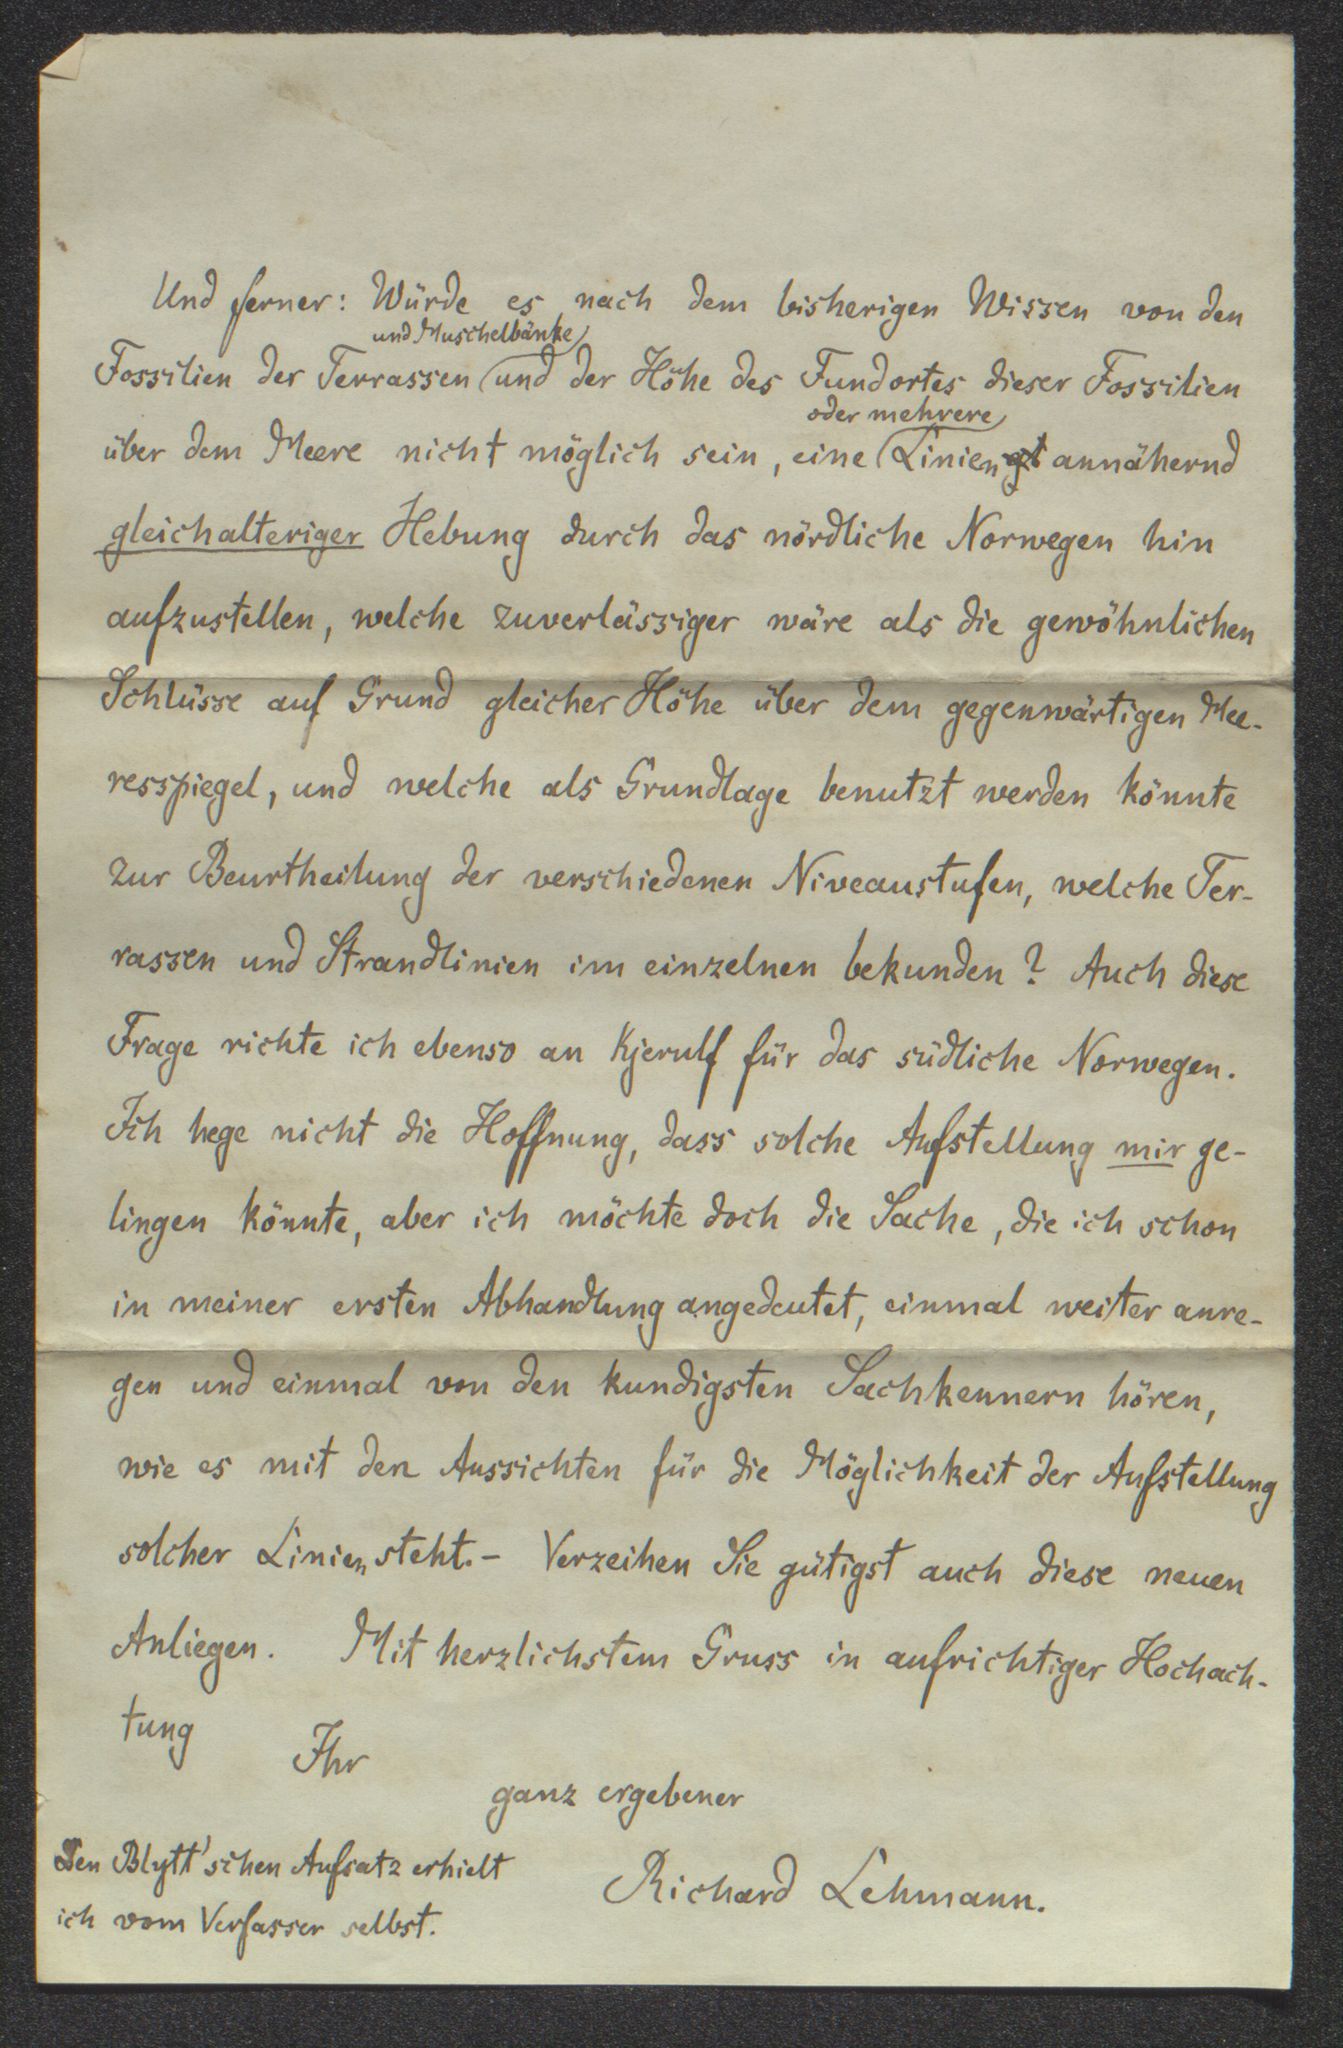 Und ferner: Würde es nach dem bisherigen Wissen von den
und Muschelbänke
Fossilien der Terrassen und der Höhe des Fundortes dieser Fossilien
oder mehrere
über dem Meere nicht möglich sein, eine Linien annähernd
gleichalteriger Hebung durch das nördliche Norwegen hin
aufzustellen, welche zuverlässiger wäre als die gewöhnlichen
Schlüsse auf Grund gleicher Höhe über dem gegenwärtigen Mee-
resspiegel, und welche als Grundlage benutzt werden könnte
zur Beurtheilung der verschiedenen Niveaustufen, welche Ter-
rassen und Strandlinien im einzelnen bekunden? Auch diese
Frage richte ich ebenso an Kjerulf für das südliche Norwegen.
Ich hege nicht die Hoffnung, dass solche Aufstellung mir ge-
lingen könnte, aber ich möchte doch die Sache, die ich schon
in meiner ersten Abhandlung angedeutet, einmal weiter anre-
gen und einmal von den kundigsten Sachkennern hören,
wie es mit den Aussichten für die Möglichkeit der Aufstellung
solcher Linien steht. - Verzeihen Sie gütigst auch diese neuen
Anliegen. Mit herzlichstem Gruss in aufrichtiger Hochach-
tung
Ihr
ganz ergebener
Richard Lehmann.
Den Blytt'schen Aufsatz erhielt
ich vom Verfasser selbst.